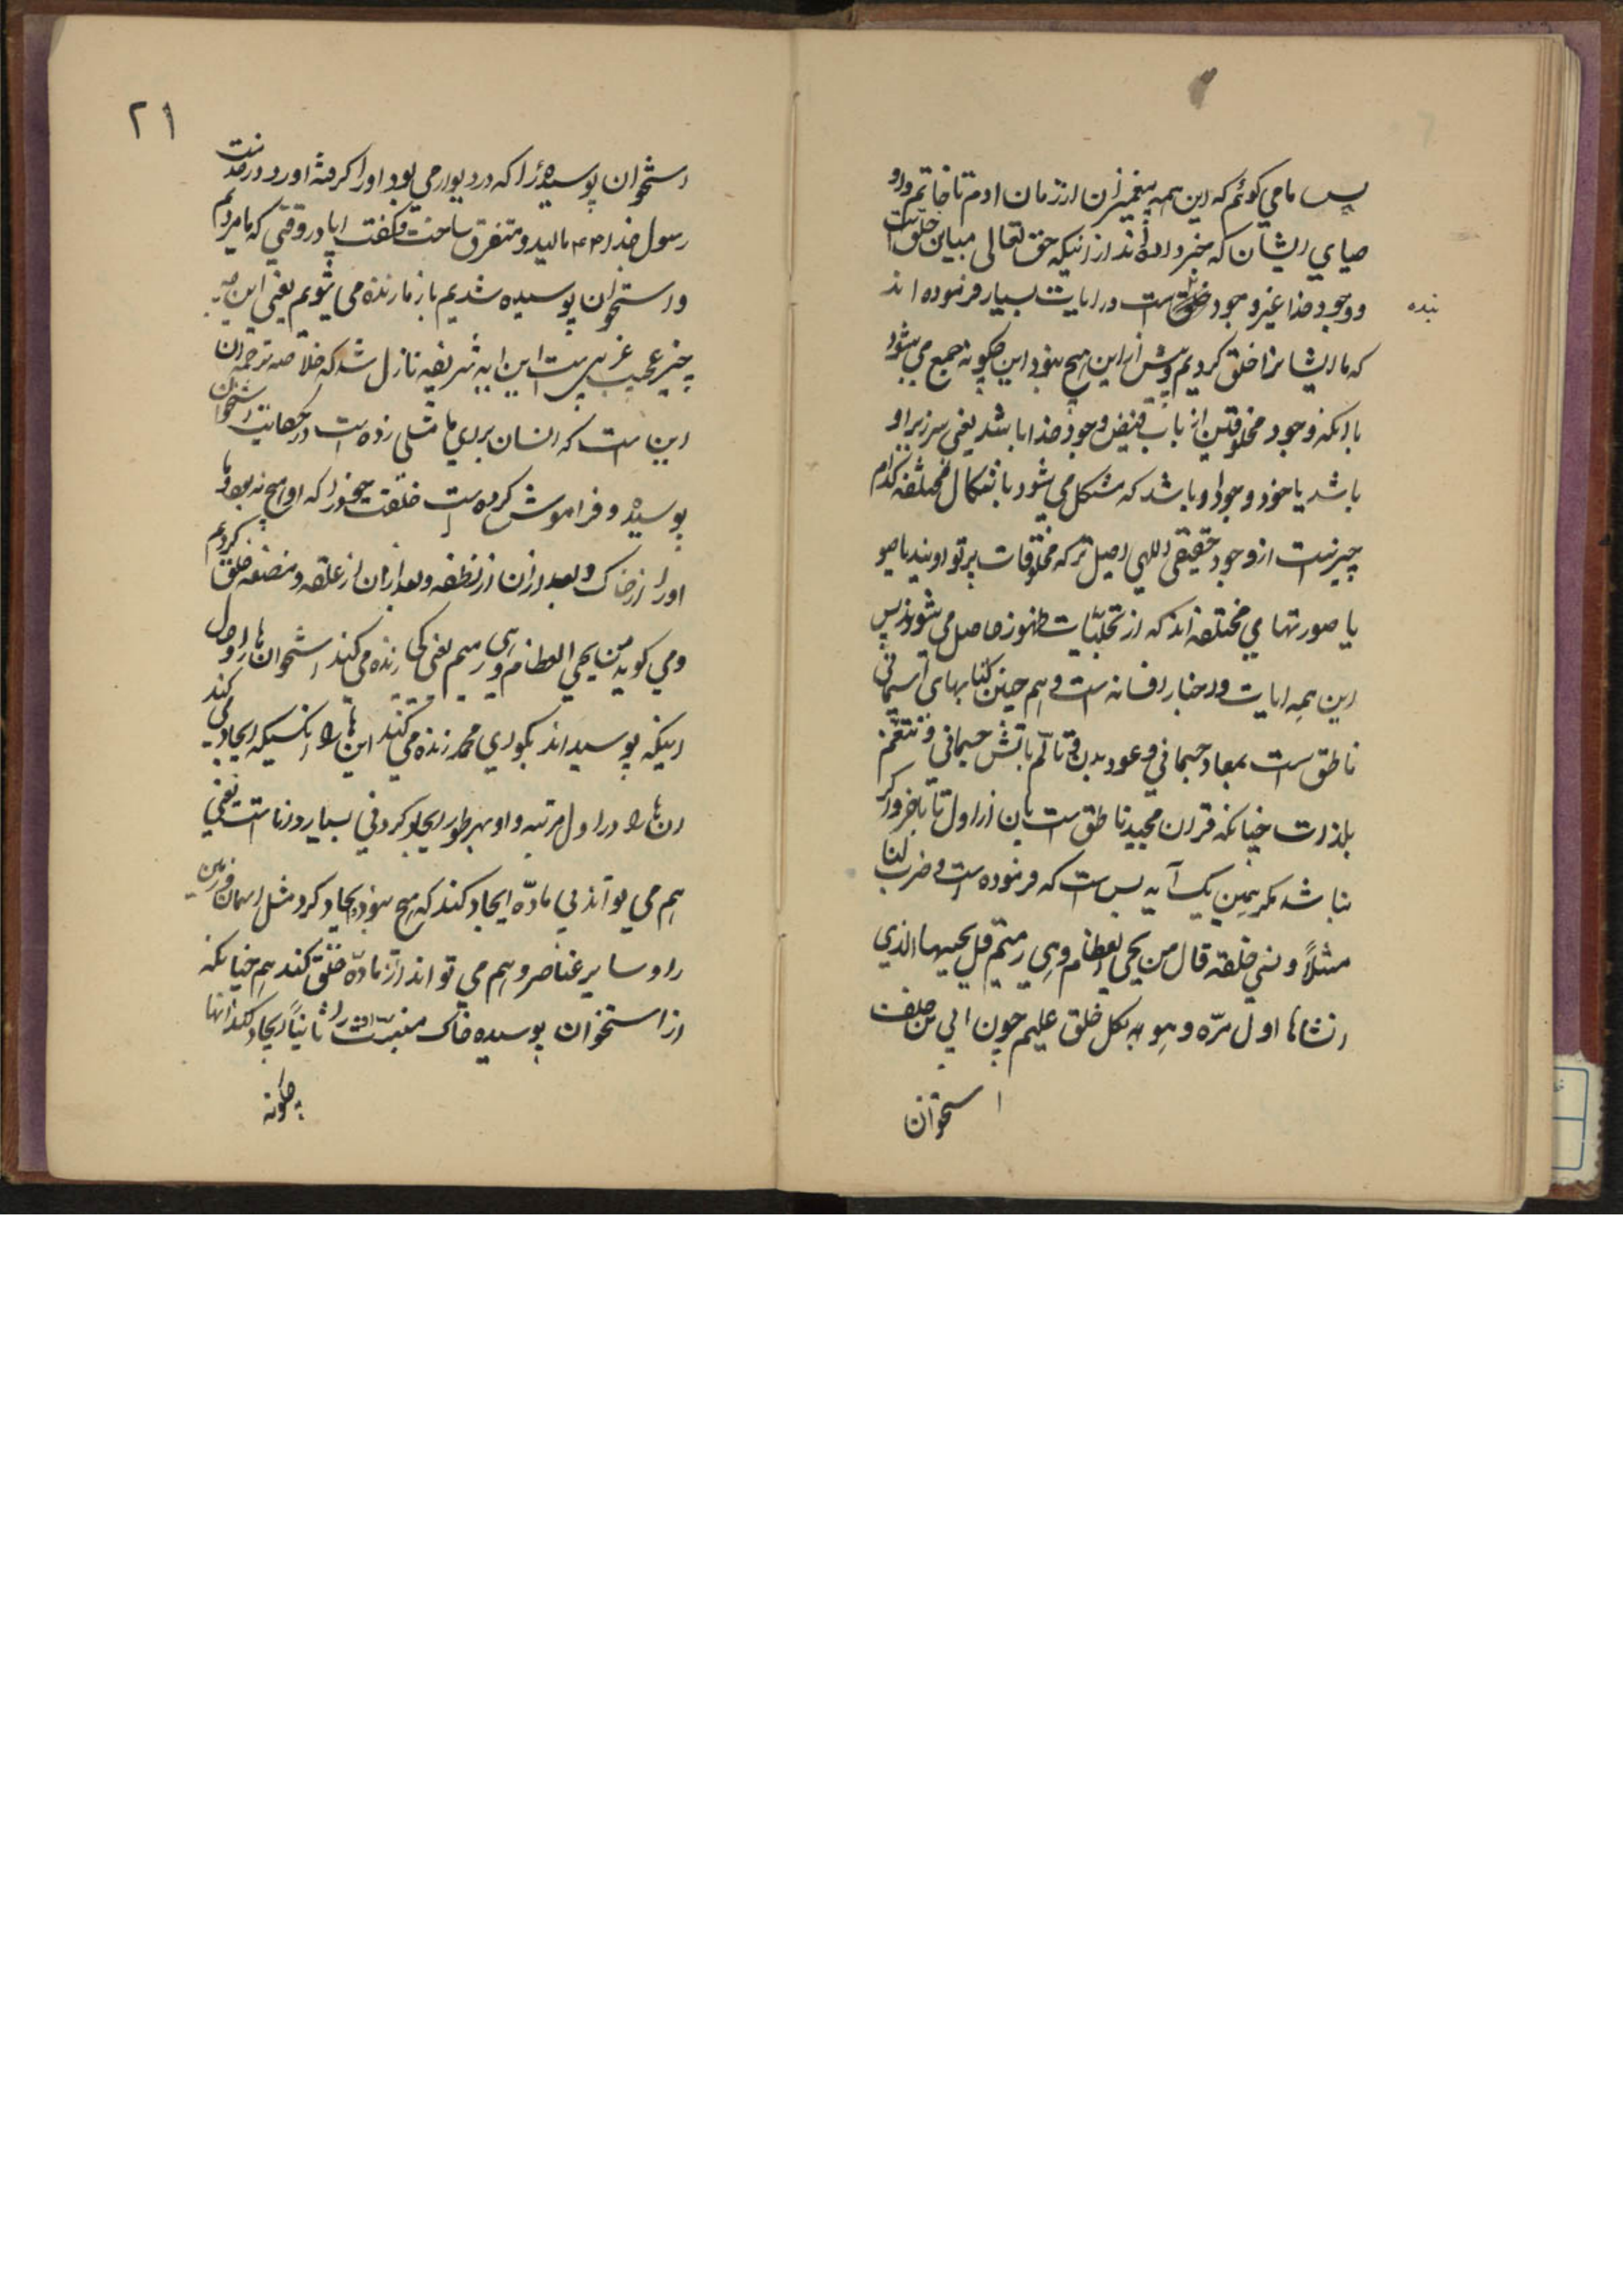 پس ما می کوئیم که این همه پیغمبران از زمان ادم تا خاتم و او
صیای ایشان که خبر داده اند از اینکه حق تعالی مباین خلق است
و وجود خدا غیر وجود خلق است در ایات بسیار فرموده اند
بنده
که ما ایشانرا خلق کردیم و پیش از این هیچ نبود این چکونه جمع می شود
با انکه وجود مخلوقین از باب فیض وجود خدا باشد یعنی سرریز او
باشد یا خود وجود او باشد که مشکل می شود باشکال مختلفه کدام
چیز است از وجود حقیقی اللهی اصیل تر که مخلوقات پرتو اویند یا صو
یا صورتهای مختلفه اند که از تجلیات ظهور حاصل می شوند پس
این همه ایات و اخبار افسانه است و هم چنین کتابهای اسمانی
ناطق است بمعاد جسمانی و عود بدن و تالّم باتش جسمانی و تنعّم
بلذات چنانکه قران مجید ناطق است بان از اول تا باخر و اکر
نباشد مکر همین یک آیه بس است که فرموده است و ضرب لنا
مثلاً و نسی خلقه قال من یحی العظام و هی رمیم قل یحییها الذی
انشاها اول مرّه و هو بکل خلق علیم چون ابی بن خلف
استخوان
۲۱
استخوان پوسیدهٔ را که در دیواری بود اورا کرفته اورد در خدمت
رسول خدا مالید و متفرق ساخت و کفت ایا در وقتی که ما مردیم
و استخوان پوسیده شدیم باز ما زنده می شویم یعنی این چه
چیز عجیب غریبی است این ایه شریفه نازل شد که خلاصه ترجمه ان
این است که انسان برای ما مثلی زده است در حکایت استخوان
پوسیده و فراموش کرده است خلقت خود را که او هیچ نبود و ما
اورا از خاک و بعد از ان از نطفه و بعد از ان از علقه و مضغه خلق کردیم
و می کوید من یحیی العظام و هی رمیم یعنی کی زنده می کند استخوان ها را و حال
اینکه پوسیده اند بکو ای محمد زنده می کند این ها را انکسیکه ایجاد می کند
ان ها را در اول مرتبه و او بهر طور ایجاد کردنی بسیار دانا است یعنی
هم می تواند بی مادّه ایجاد کند که هیچ نبود و ایجاد کرد مثل اسمان و زمین
را و سایر عناصر و هم می تواند از مادّه خلق کند هم چنانکه
از استخوان پوسیده خاک ثانیاً ایجاد کند انها
چکونه